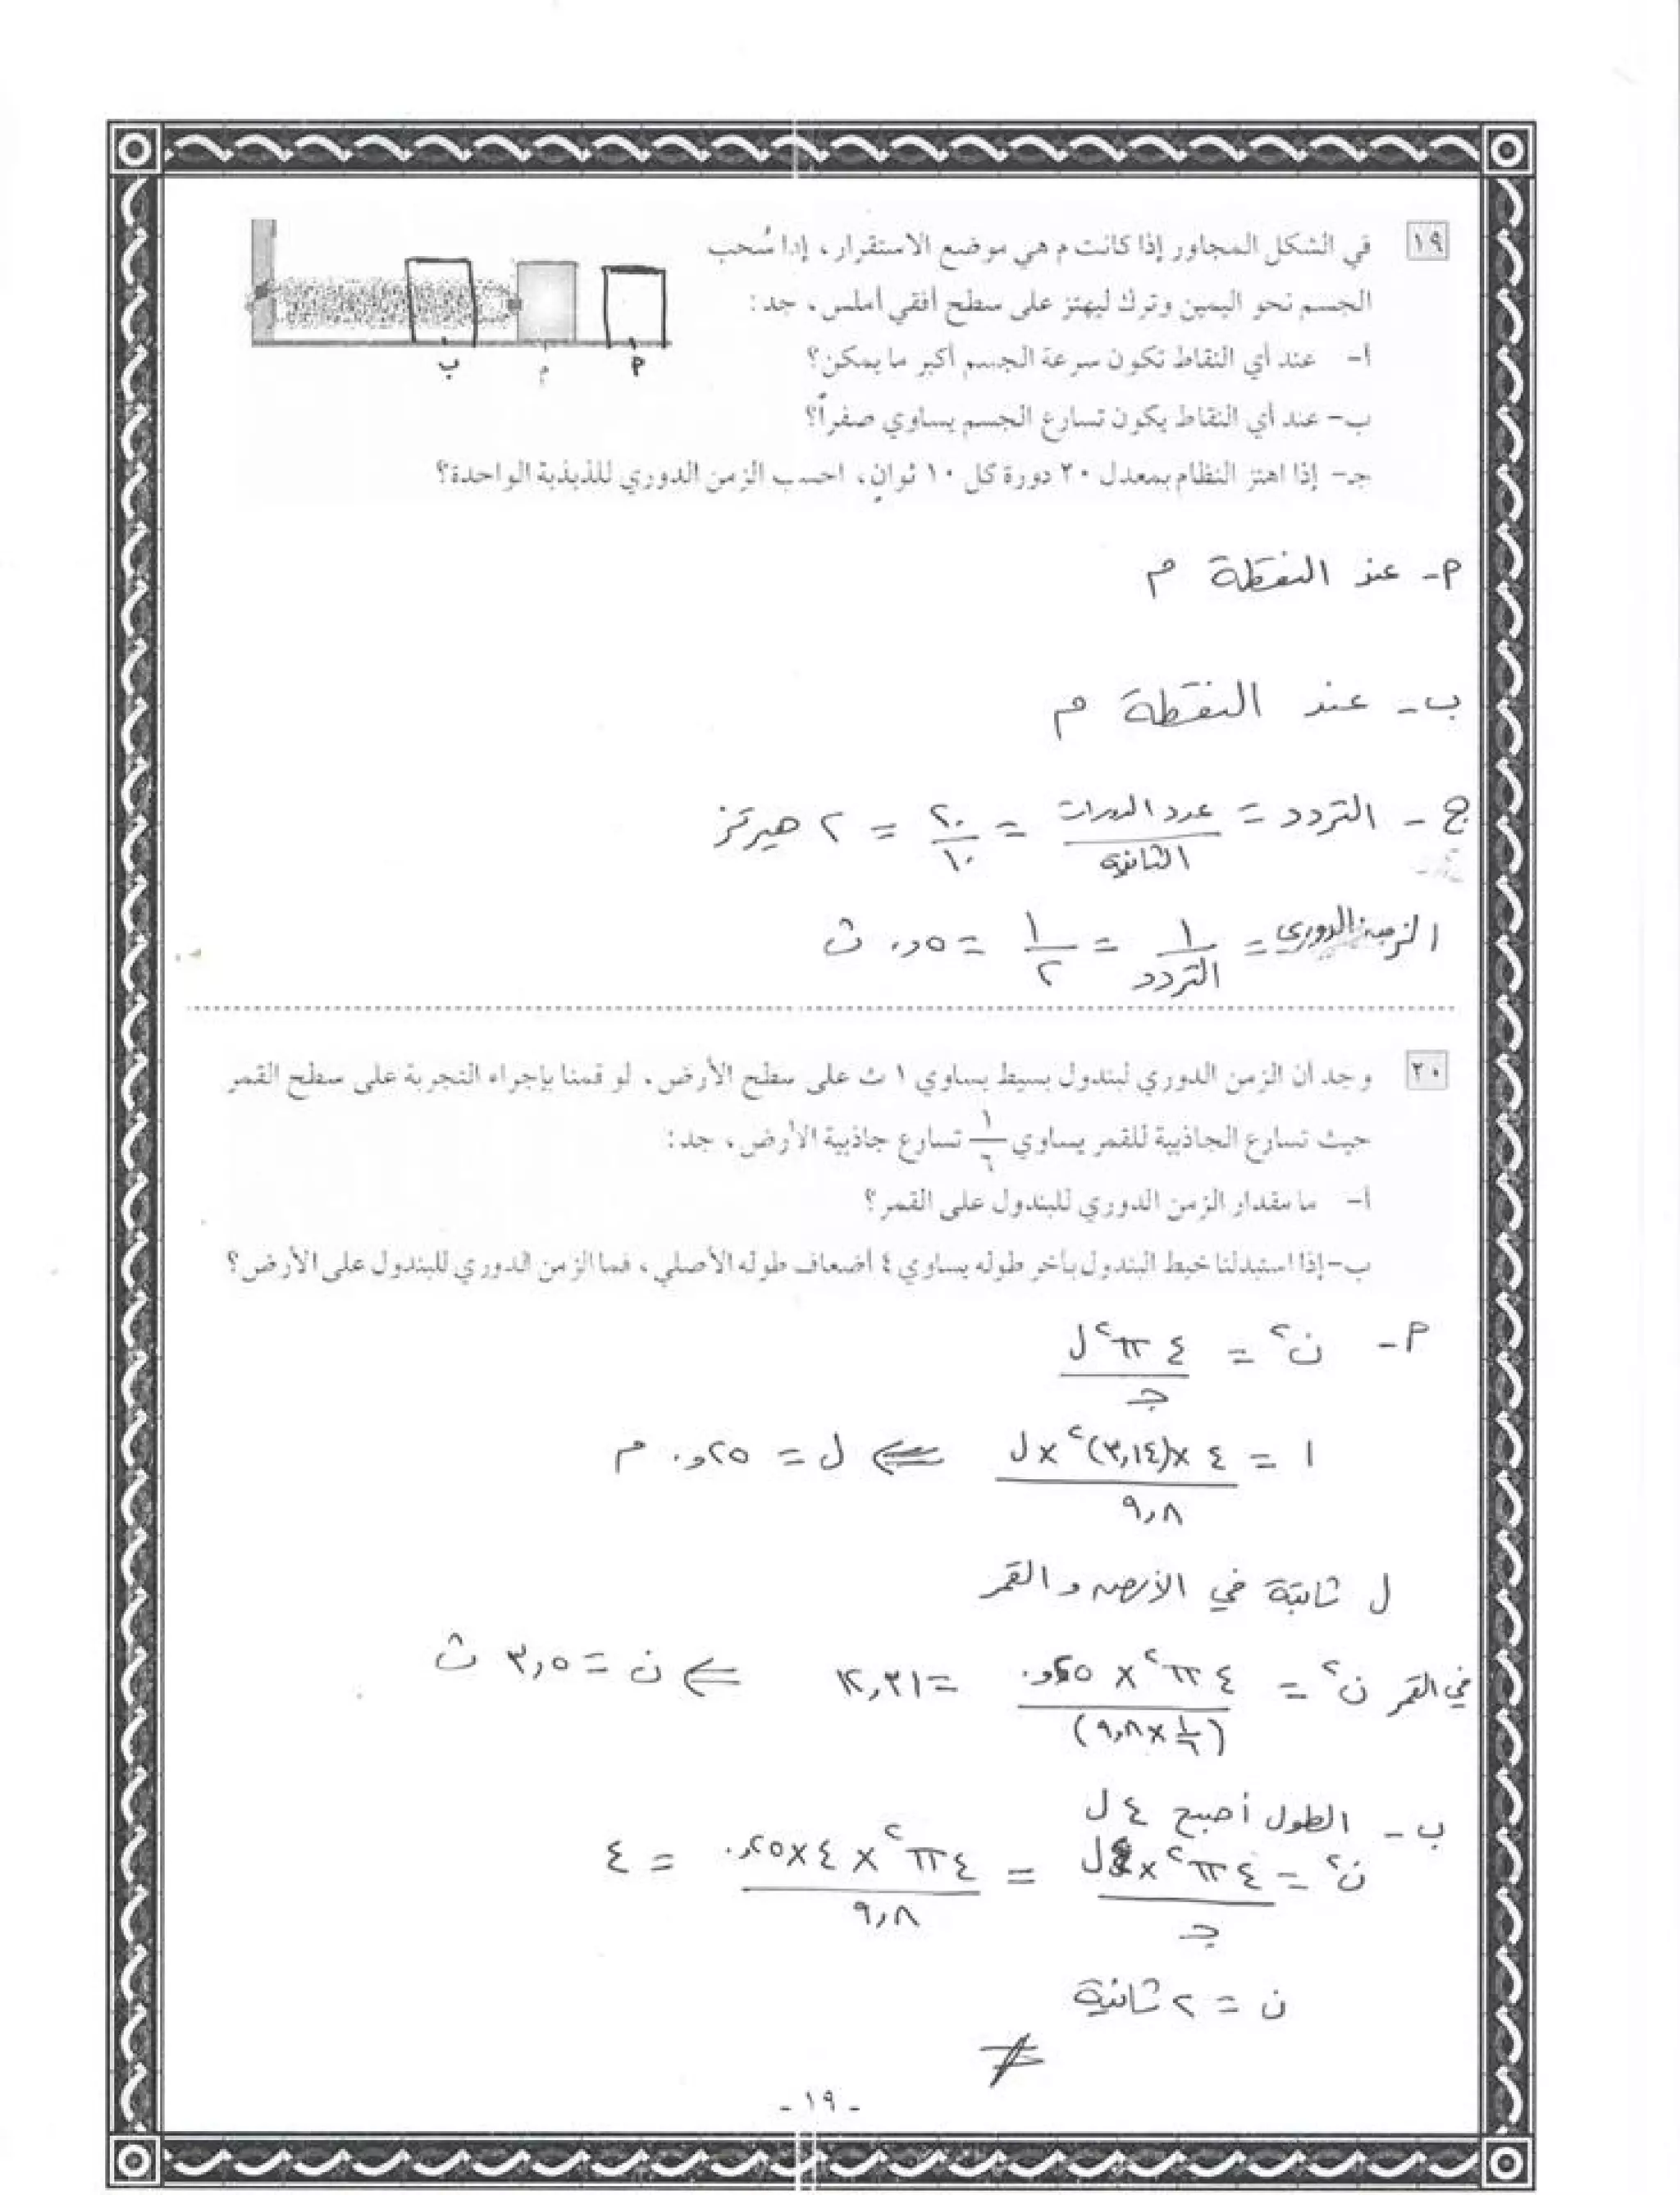 ١٩ في الشكل المجاور إذا كانت م هي موضع الاستقرار، إذا سُحب
الجسم نحو اليمين وترك ليهتز على سطح أفقي أملس، جد:
أ- عند أي النقاط تكون سرعة الجسم أكبر ما يمكن؟
ب- عند أي النقاط يكون تسارع الجسم يساوي صفراً؟
جـ- إذا اهتز النظام بمعدل ٢٠ دورة كل ١٠ ثوانٍ، احسب الزمن الدوري للذبذبة الواحدة؟
ب م أ
أ- عند النقطة م
ب- عند النقطة م
ج- التردد = عدد الدورات / الثانية = ٢٠ / ١٠ = ٢ هيرتز
الزمن الدوري = ١ / التردد = ١ / ٢ = ٠,٥ ث
٢٠ وجد أن الزمن الدوري لبندول بسيط يساوي ١ ث على سطح الأرض، لو قمنا بإجراء التجربة على سطح القمر
حيث تسارع الجاذبية للقمر يساوي ١/٦ تسارع جاذبية الأرض، جد:
أ- ما مقدار الزمن الدوري للبندول على القمر؟
ب- إذا استبدلنا خيط البندول بآخر طوله يساوي ٤ أضعاف طوله الأصلي، فما الزمن الدوري للبندول على الأرض؟
أ- ن٢ = ٤ π٢ ل / جـ
١ = ٤ × (٣,١٤)٢ × ل / ٩,٨ ⇐ ل = ٠,٢٥ م
ل ثابتة في الأرض و القمر
في القمر ن٢ = ٤ π٢ × ٠,٢٥ / (١/٦ × ٩,٨) = ١٢,٣١ ⇐ ن = ٣,٥ ث
ب- الطول أصبح ٤ ل
ن٢ = ٤ π٢ × ٤ ل / جـ = ٤ π٢ × ٤ × ٠,٢٥ / ٩,٨ = ٤
ن = ٢ ثانية
- ١٩ -